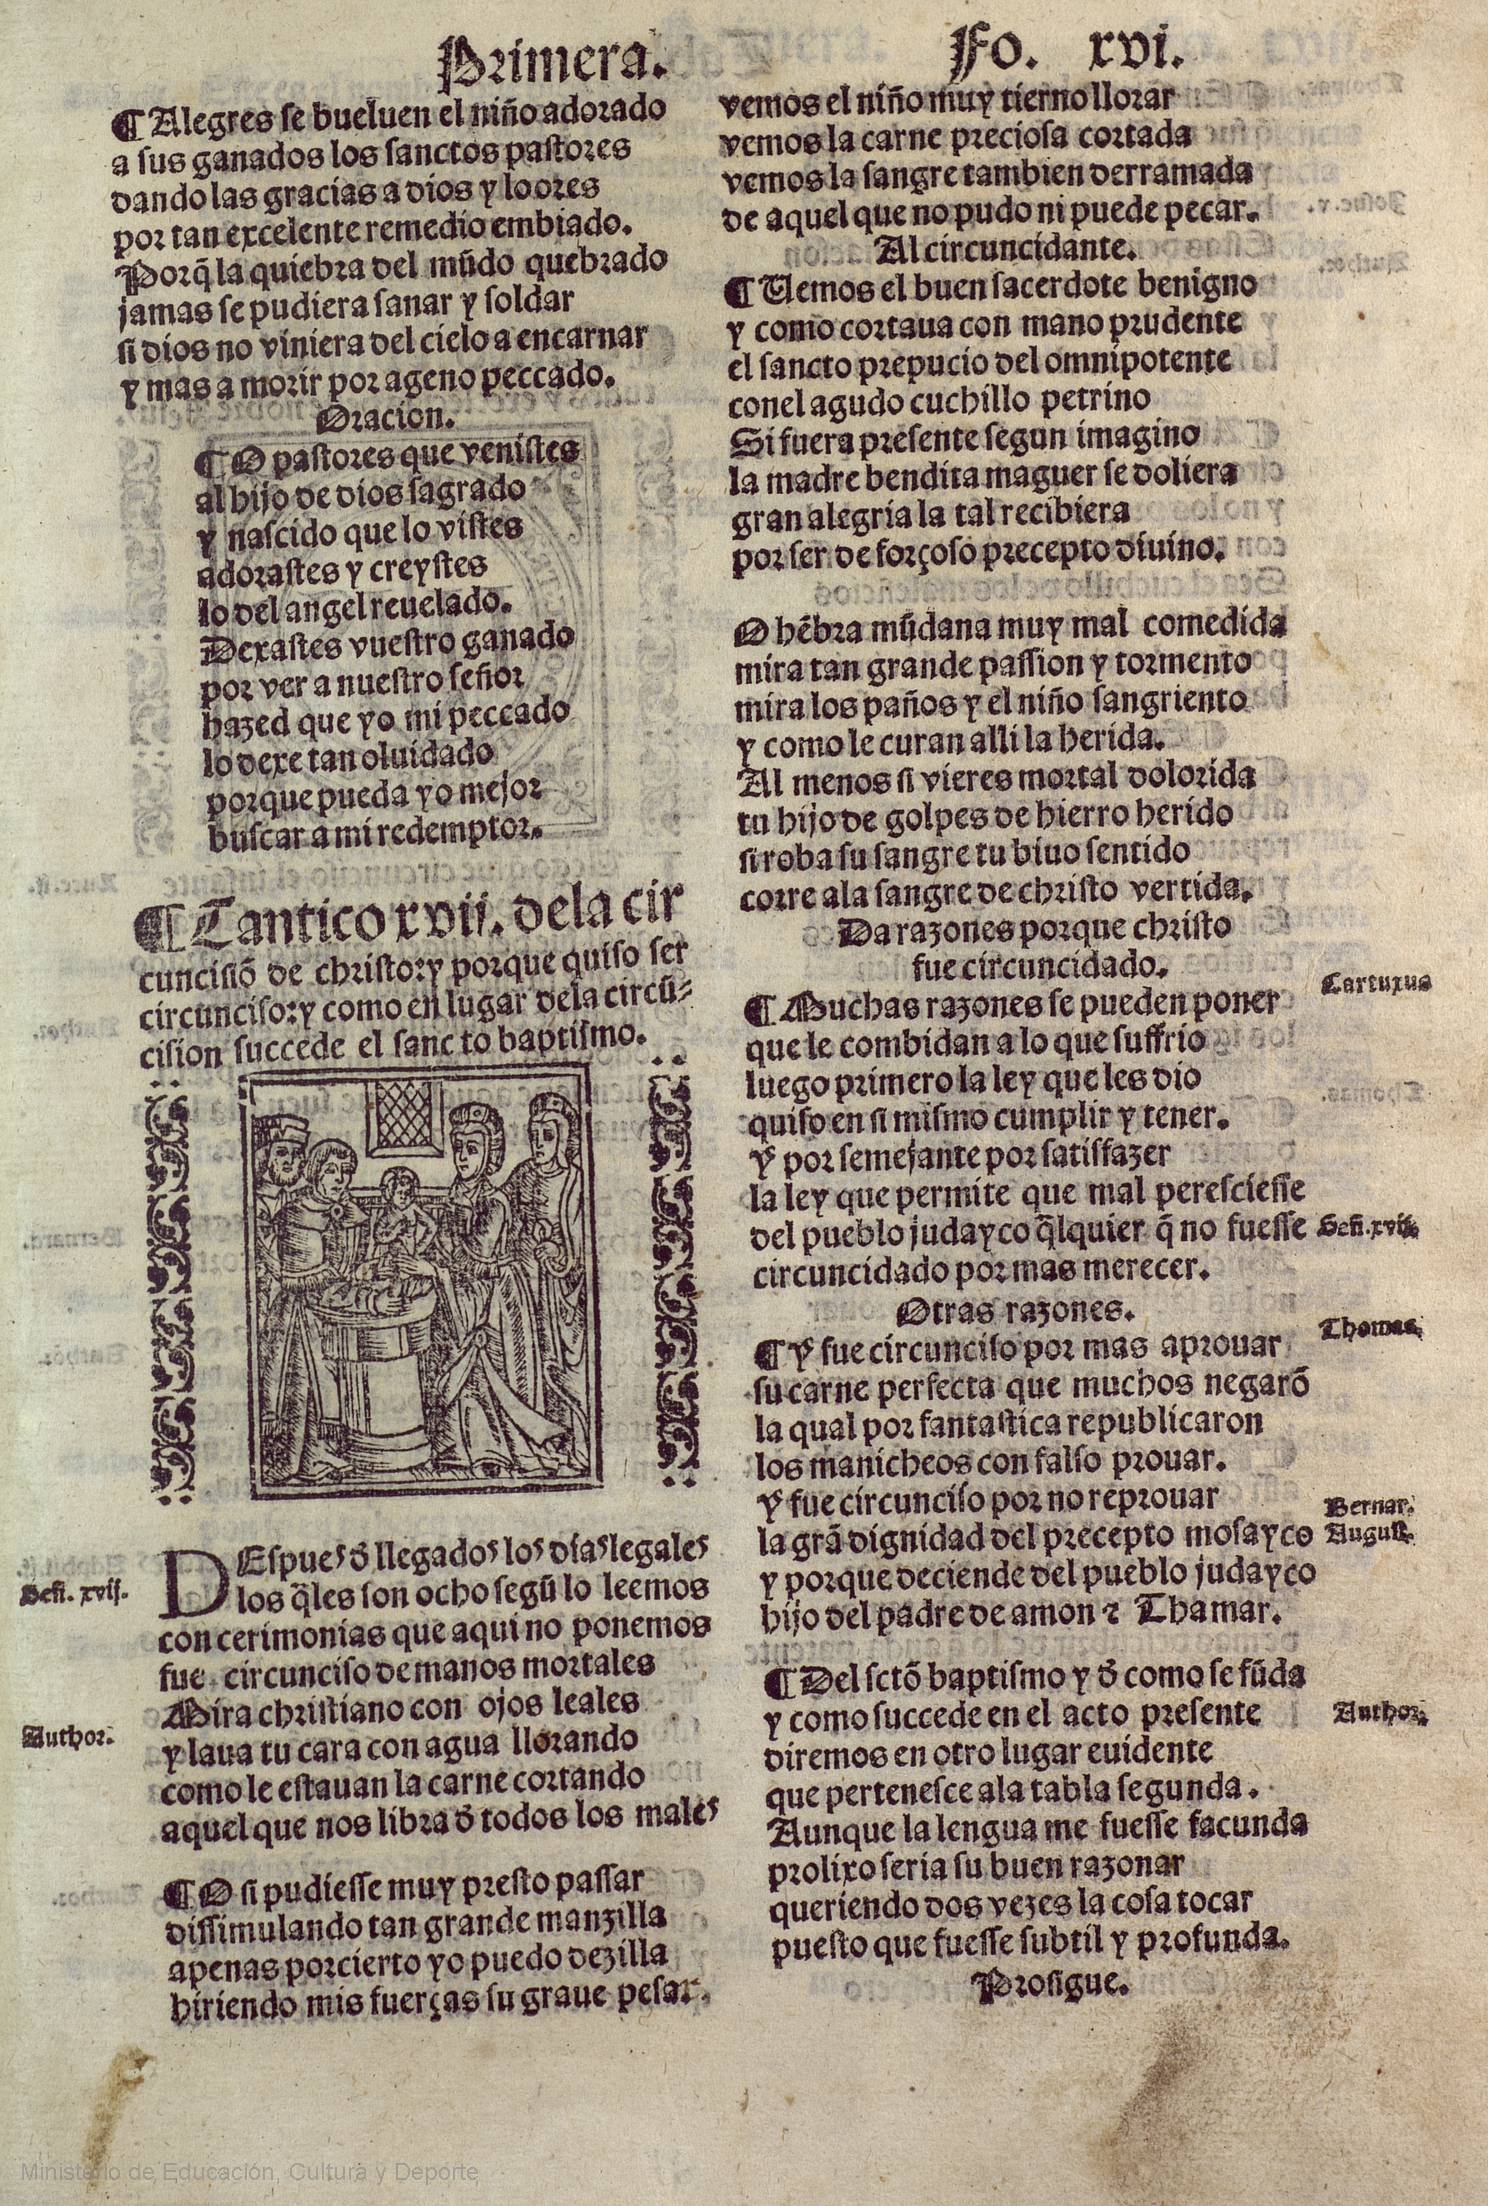 Primera. Fo. xvi.
¶ Alegres se bueluen el niño adorado
a sus ganados los sanctos pastores
dando las gracias a dios y loores
por tan excelente remedio embiado.
Porq̃ la quiebra del mũdo quebrado
jamas se pudiera sanar y soldar
si dios no viniera del cielo a encarnar
y mas a morir por ageno peccado.
Oracion.
¶ O pastores que venistes
al hijo de dios sagrado
y nascido que lo vistes
adorastes y creystes
lo del angel reuelado.
Dexastes vuestro ganado
por ver a nuestro señor
hazed que yo mi peccado
lo dexe tan oluidado
porque pueda yo mejor
buscar a mi redemptor.
¶ Cantico xvij. dela cir
cuncisiõ de christo: y porque quiso ser
circunciso: y como en lugar dela circũ-
cision succede el sancto baptismo.
DEspues d̃ llegados los dias legales
los q̃les son ocho segũ lo leemos
con cerimonias que aqui no ponemos
fue circunciso de manos mortales
Mira christiano con ojos leales
y laua tu cara con agua llorando
como le estauan la carne cortando
aquel que nos libra d̃ todos los males
Gen. xvij.
Author.
¶ O si pudiesse muy presto passar
dissimulando tan grande manzilla
apenas porcierto yo puedo dezilla
hiriendo mis fuerças su graue pesar.
vemos el niño muy tierno llorar
vemos la carne preciosa cortada
vemos la sangre tambien derramada
de aquel que no pudo ni puede pecar.
Al circuncidante.
¶ Uemos el buen sacerdote benigno
y como cortaua con mano prudente
el sancto prepucio del omnipotente
conel agudo cuchillo petrino
Si fuera presente segun imagino
la madre bendita maguer se doliera
gran alegria la tal recibiera
por ser de forçoso precepto diuino.
O hẽbra mũdana muy mal comedida
mira tan grande passion y tormento
mira los paños y el niño sangriento
y como le curan alli la herida.
Al menos si vieres mortal dolorida
tu hijo de golpes de hierro herido
si roba su sangre tu biuo sentido
corre ala sangre de christo vertida.
Da razones porque christo
fue circuncidado.
¶ Muchas razones se pueden poner
que le combidan a lo que suffrio
luego primero la ley que les dio
quiso en si mismo cumplir y tener.
Y por semejante por satisfazer
la ley que permite que mal peresciesse
del pueblo judayco q̃lquier q̃ no fuesse
circuncidado por mas merecer.
Cartuxus
Gen. xvij.
Otras razones.
¶ Y fue circunciso por mas aprouar
su carne perfecta que muchos negarõ
la qual por fantastica republicaron
los manicheos con falso prouar.
Y fue circunciso por no reprouar
la grã dignidad del precepto mosayco
y porque deciende del pueblo judayco
hijo del padre de amon ⁊ Thamar.
Thomas.
Bernar.
August.
¶ Del sctõ baptismo y d̃ como se fũda
y como succede en el acto presente
diremos en otro lugar euidente
que pertenesce ala tabla segunda.
Aunque la lengua me fuesse facunda
prolixo seria su buen razonar
queriendo dos vezes la cosa tocar
puesto que fuesse subtil y profunda.
Author.
Prosigue.
Ministerio de Educación, Cultura y Deporte